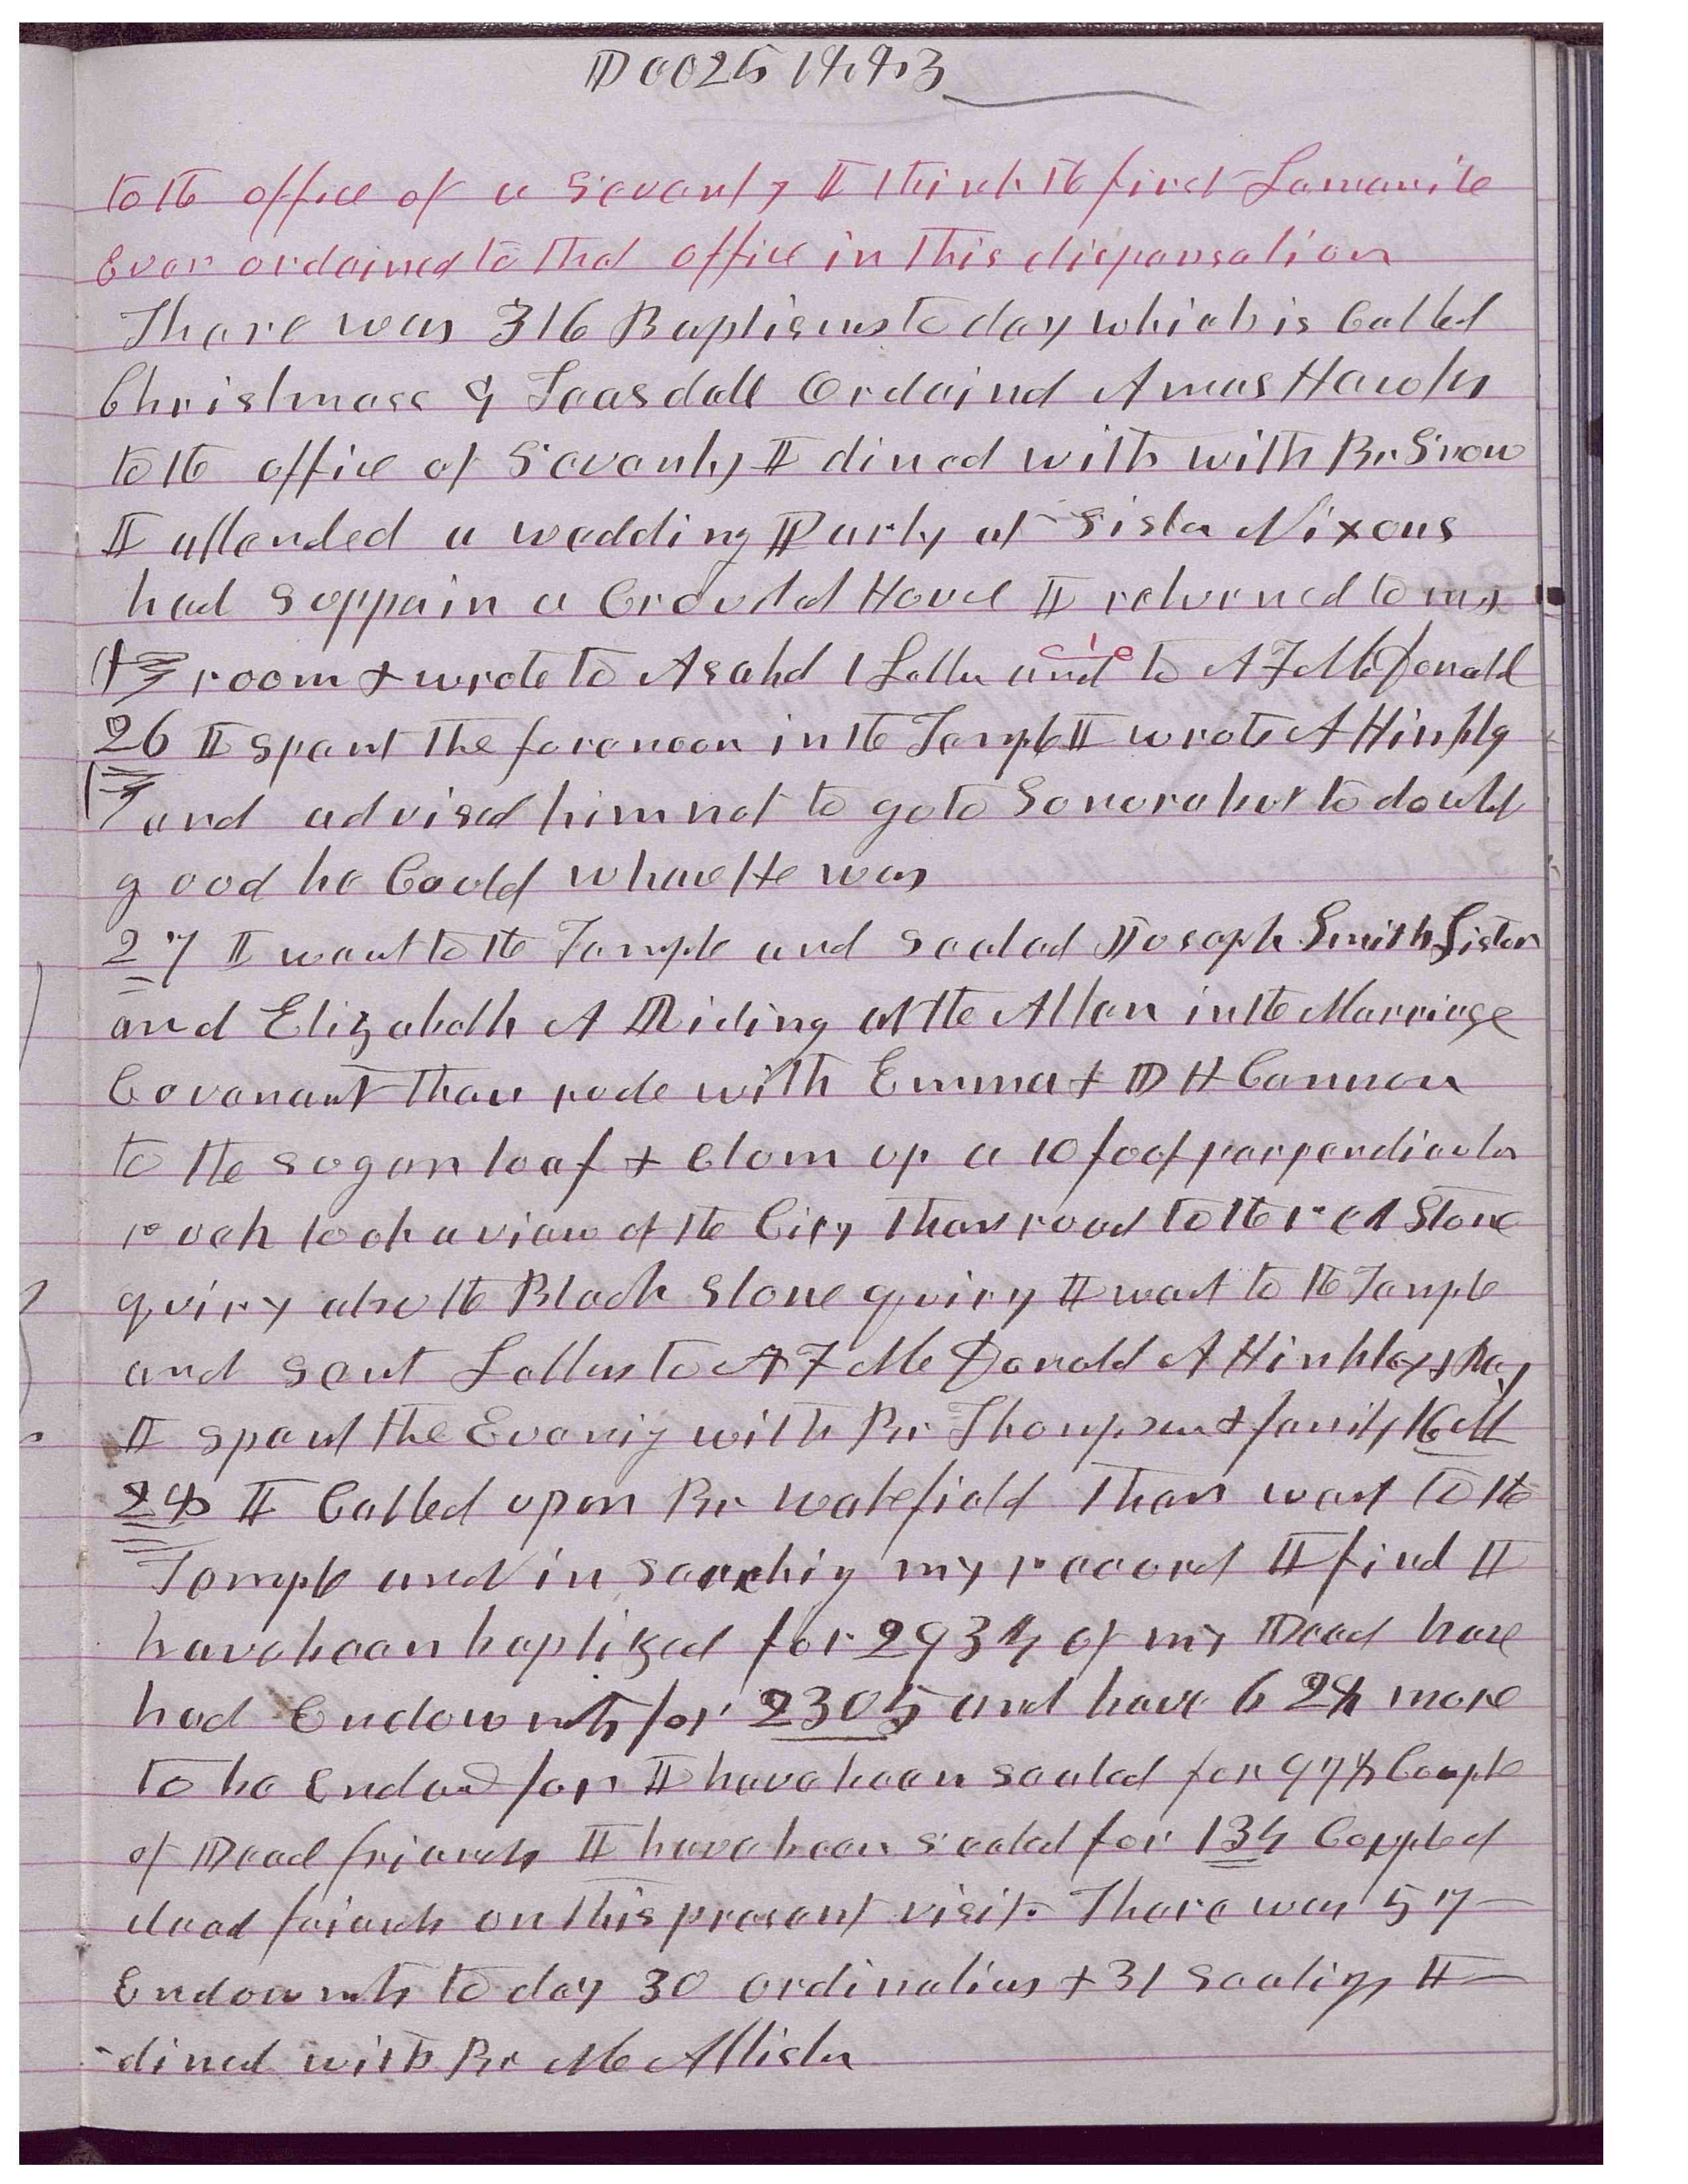 Dec 25 1883
to the office of a Seventy I think the first Lamanite
Ever ordained to that office in this dispensation
There was 316 Baptisms to day which is Called
Christmass G Teasdall Ordaind Amos Hawks
to the office of Seventy I dined with with Br Snow
I attended a wedding Party at Sister Nixons
had supper in a Crowded House I returned to my
room & wrote to Asahel 1 Letter and to A F McDonald
26 I spent the forenoon in the Temple I wrote A Hinkly
and advised him not to go to Sonora but to do all the
good he Could whare He was
27 I went to the Temple and sealed Joseph Smith
and Elizabeth A Riding at the Altar in the Marriage
Covenant then rode with Emma & D H Cannon
to the sugar loaf & clom up a 10 foot perpendicular
rock took a view of the City then road to the red Stone
quiry also the Black Stone quiry I went to the Temple
and sent Letters to A F McDonald A Hinkley
I spent the Evenig with Br Thompson & family
28 I Called upon Br Wakefield then went to the
Temple and in searchig my record I find I
have been baptized for of my Dead have
had Endowmts for 2305 and have 628 more
to be Endow for I have been sealed for Couple
of Dead friends I have been sealed for 134 Coupled
dead friends on this present visit. There was 57
Endowmts to day 30 ordinations & 31 Sealings I
dined with Br McAllister